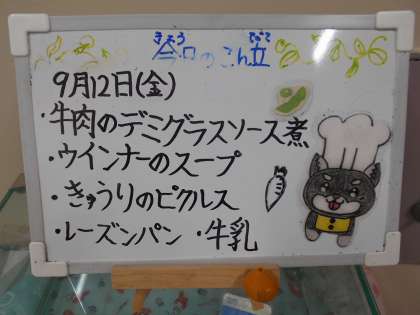 今日のこん立
きょう だて
9月12日(金)
・牛肉のデミグラスソース煮
・ウインナーのスープ
・きゅうりのピクルス
・レーズンパン ・牛乳